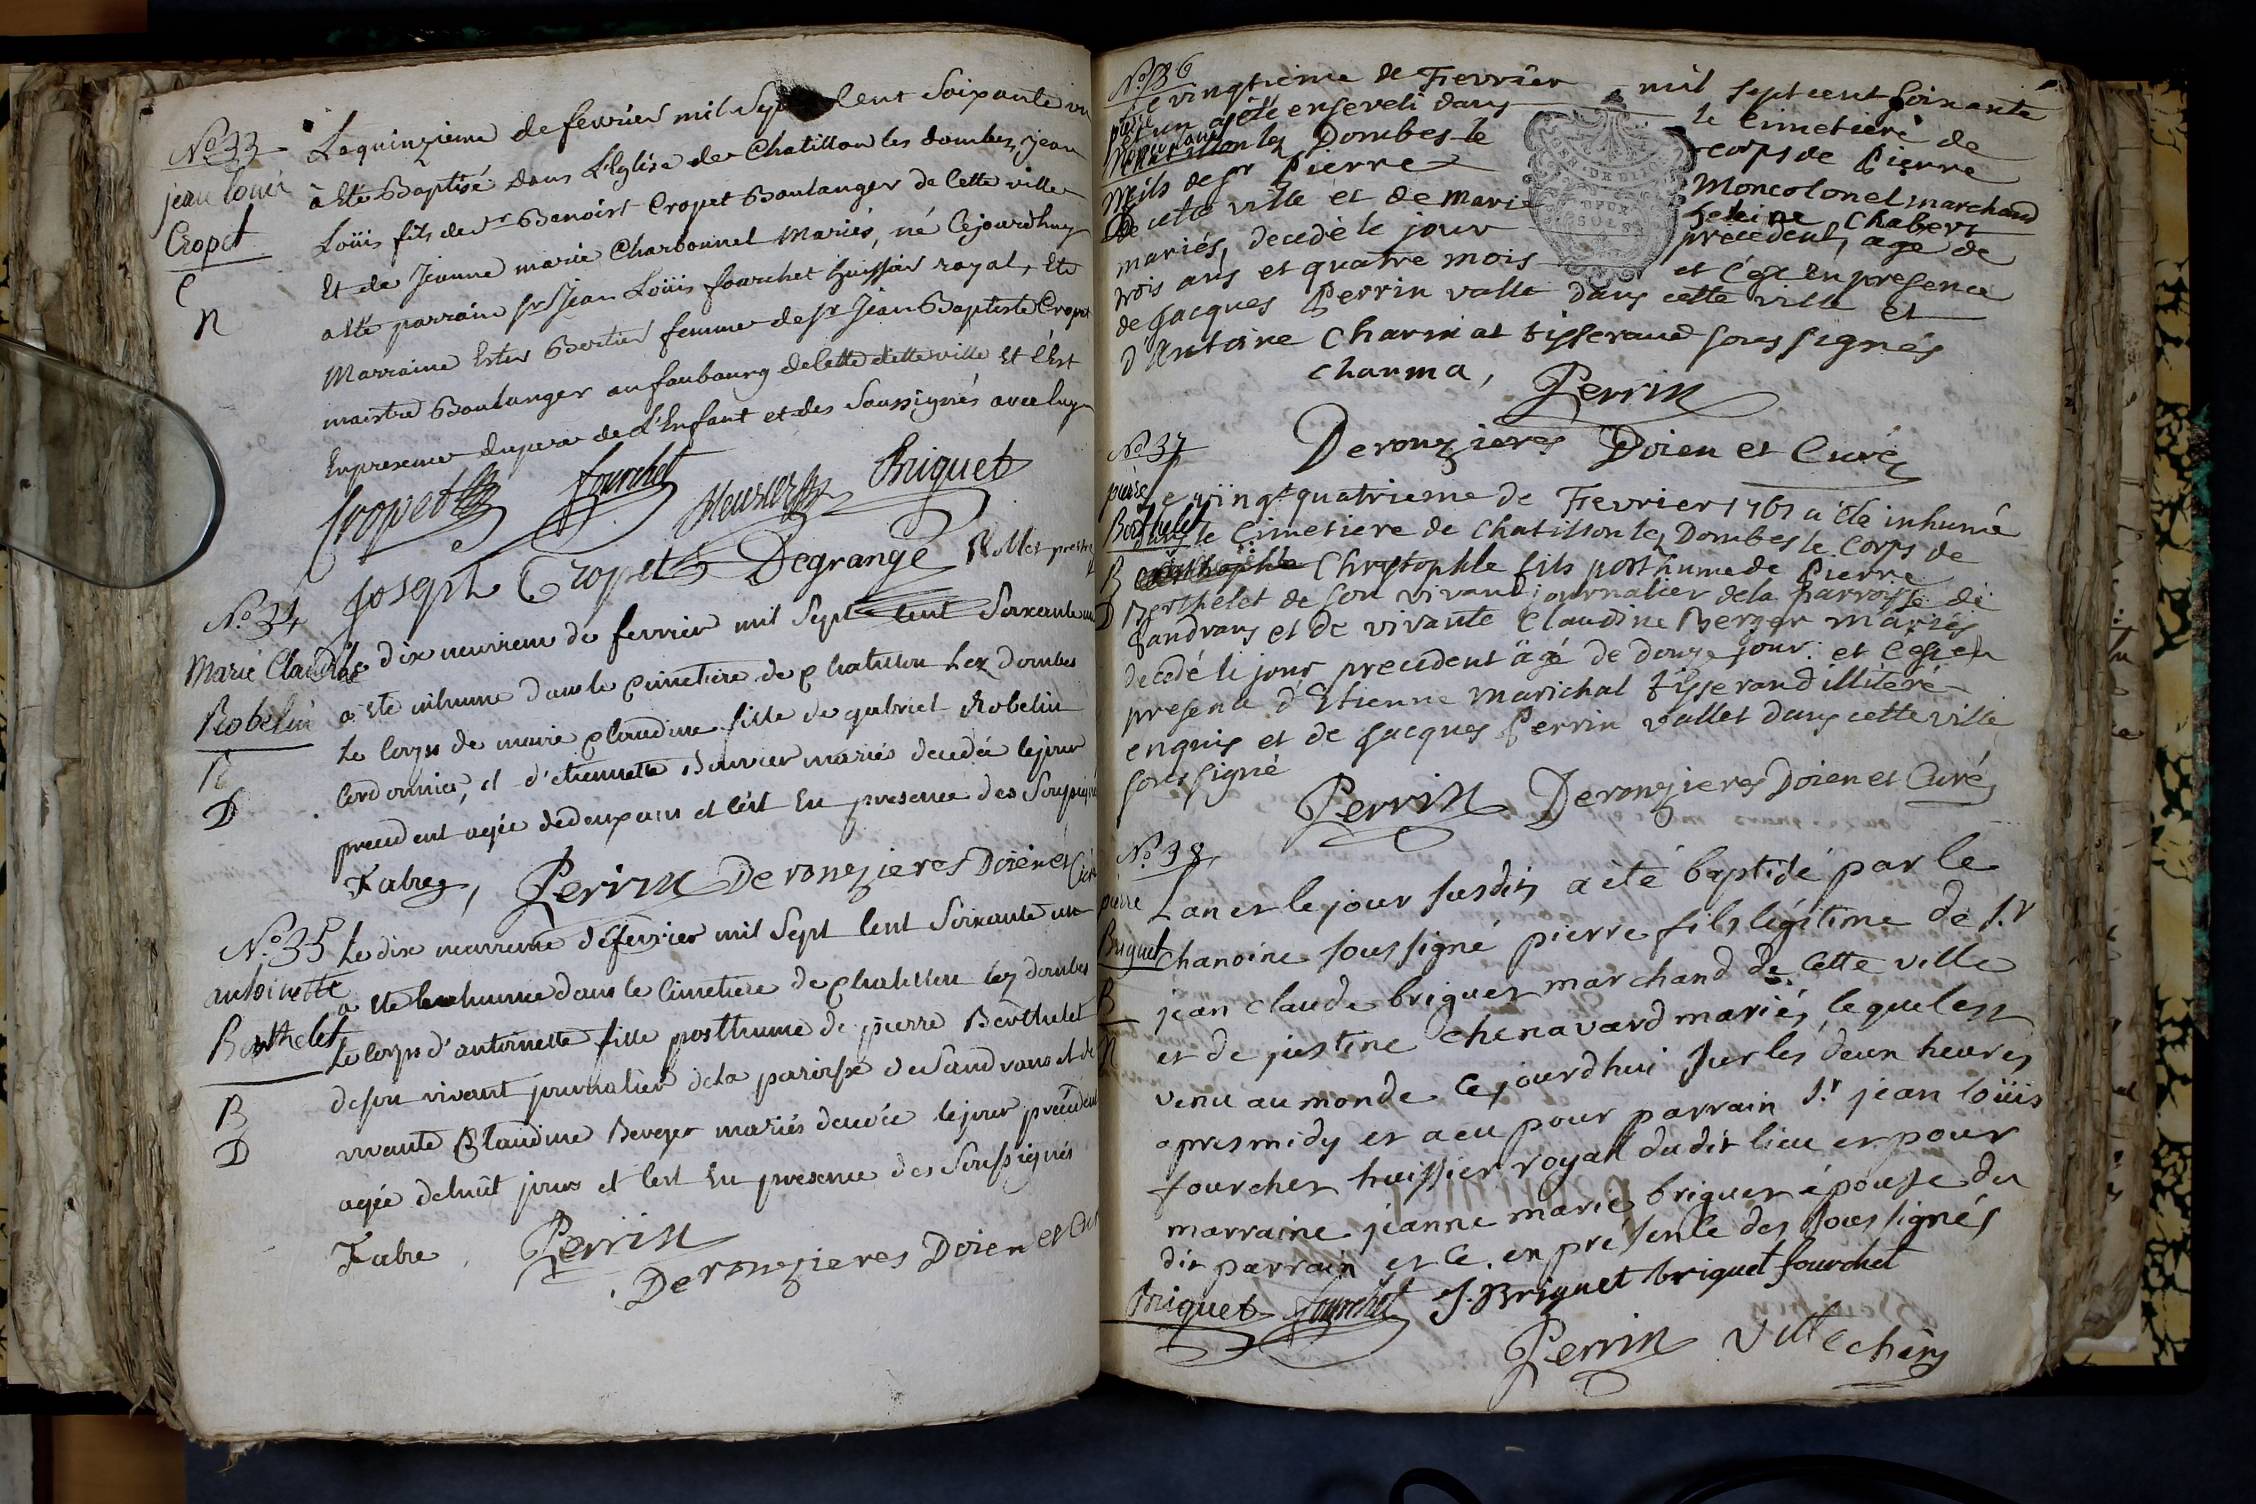 N.º 33
jean loüis
Cropet
C
N
Le quinzieme de fevrier mil Sept Cent Soixante un
à Eté Baptisé dans L'Eglise de Chatillon les dombes, jean
Loüis fils de Sr Benoist Cropet Boulanger de Cette ville
Et de Jeanne marie Charbonnel Mariés, né Cejourdhuy
a Eté parrain Sr Jean Loüis fourchet huissier royal, Et
Marraine Ester Bertier femme de Sr Jean Baptiste Cropet
maitre Boulanger au faubourg de Cette ditte ville Et C'Est
En presence du pere de L'Enfant et des Soussignés avec luy
Cropet fourchet Meunier Briquet
Joseph Cropet Degrange Rollet prestre
N.º 34
Marie Claudine
Robelin
R
D
Le dix neuvieme de fevrier mil Sept Cent Soixante un
a Eté inhumé dans le Cimetiere de Chatillon Lez dombes
Le Corps de marie Claudine fille de gabriel Robelin
Cordonnier, et d'etiennette mariés decedée le jour
precedent agée de deux ans et C'est En presence des Soussignés
Fabre, Perrin Deronzieres Doien et Curé
N.º 35
antoinette
Berthelet
B
D
Le dix neuvieme de fevrier mil Sept Cent Soixante un
a Eté inhumée dans le Cimetiere de Chatillon lez dombes
Le Corps d'antoinette fille posthume de pierre Berthelet
de son vivant journalier de la paroisse de Sandrans et de
vivante Claudine Berger mariés decedée le jour précédent
agée de huit jours et C'est En presence des Soussignés
Fabre, Perrin
Deronzieres Doien et Curé
N.º 36
pierre
Moncolonel
D
Le vingtieme de Fevrier mil sept cent soixante
et un a été enseveli dans le Cimetiere de
Chatillon lez Dombes le corps de Pierre
fils de sr Pierre Moncolonel marchand
de cette ville et de Marie Heleine Chabert
mariés, decedé le jour precedent, agé de
trois ans et quatre mois et c'est En presence
de Jacques Perrin vallet dans cette ville et
d'Antoine Charmat tisserand soussignés
charma, Perrin
Deronzieres Doien et Curé
N.º 37
pierre
Berthelet
B
D
Le vingt quatrieme de Fevrier 1761 a été inhumé
dans le Cimetiere de Chatillon lez Dombes le Corps de
Christophle fils posthume de Pierre
Berthelet de son vivant journalier de la parroisse de
Sandrans et de vivante Claudine Berger mariés
decedé le jour precedent âgé de douze jour. et C'est en
presence d'Etienne Marichal tisserand illiteré
enquis et de Jacques Perrin vallet dans cette ville
soussigné
Perrin Deronzieres Doien et Curé
N.º 38
pierre
Briquet
B
N
L'an et le jour susdits a été baptisé par le
Chanoine soussigné pierre fils légitime de S.r
jean Claude briquet marchand de Cette ville
et de justine Chenavard mariés, lequel est
venu au monde Cejourdhui sur les deux heures
apres midy et a eu pour parrain S.r jean loüis
fourchet huissier royal dudit lieu et pour
marraine jeanne marie briquet épouse du
dit parrain et Ce en présence des soussignés
Briquet fourchet J. Briquet briquet fourchet
Perrin Villechery